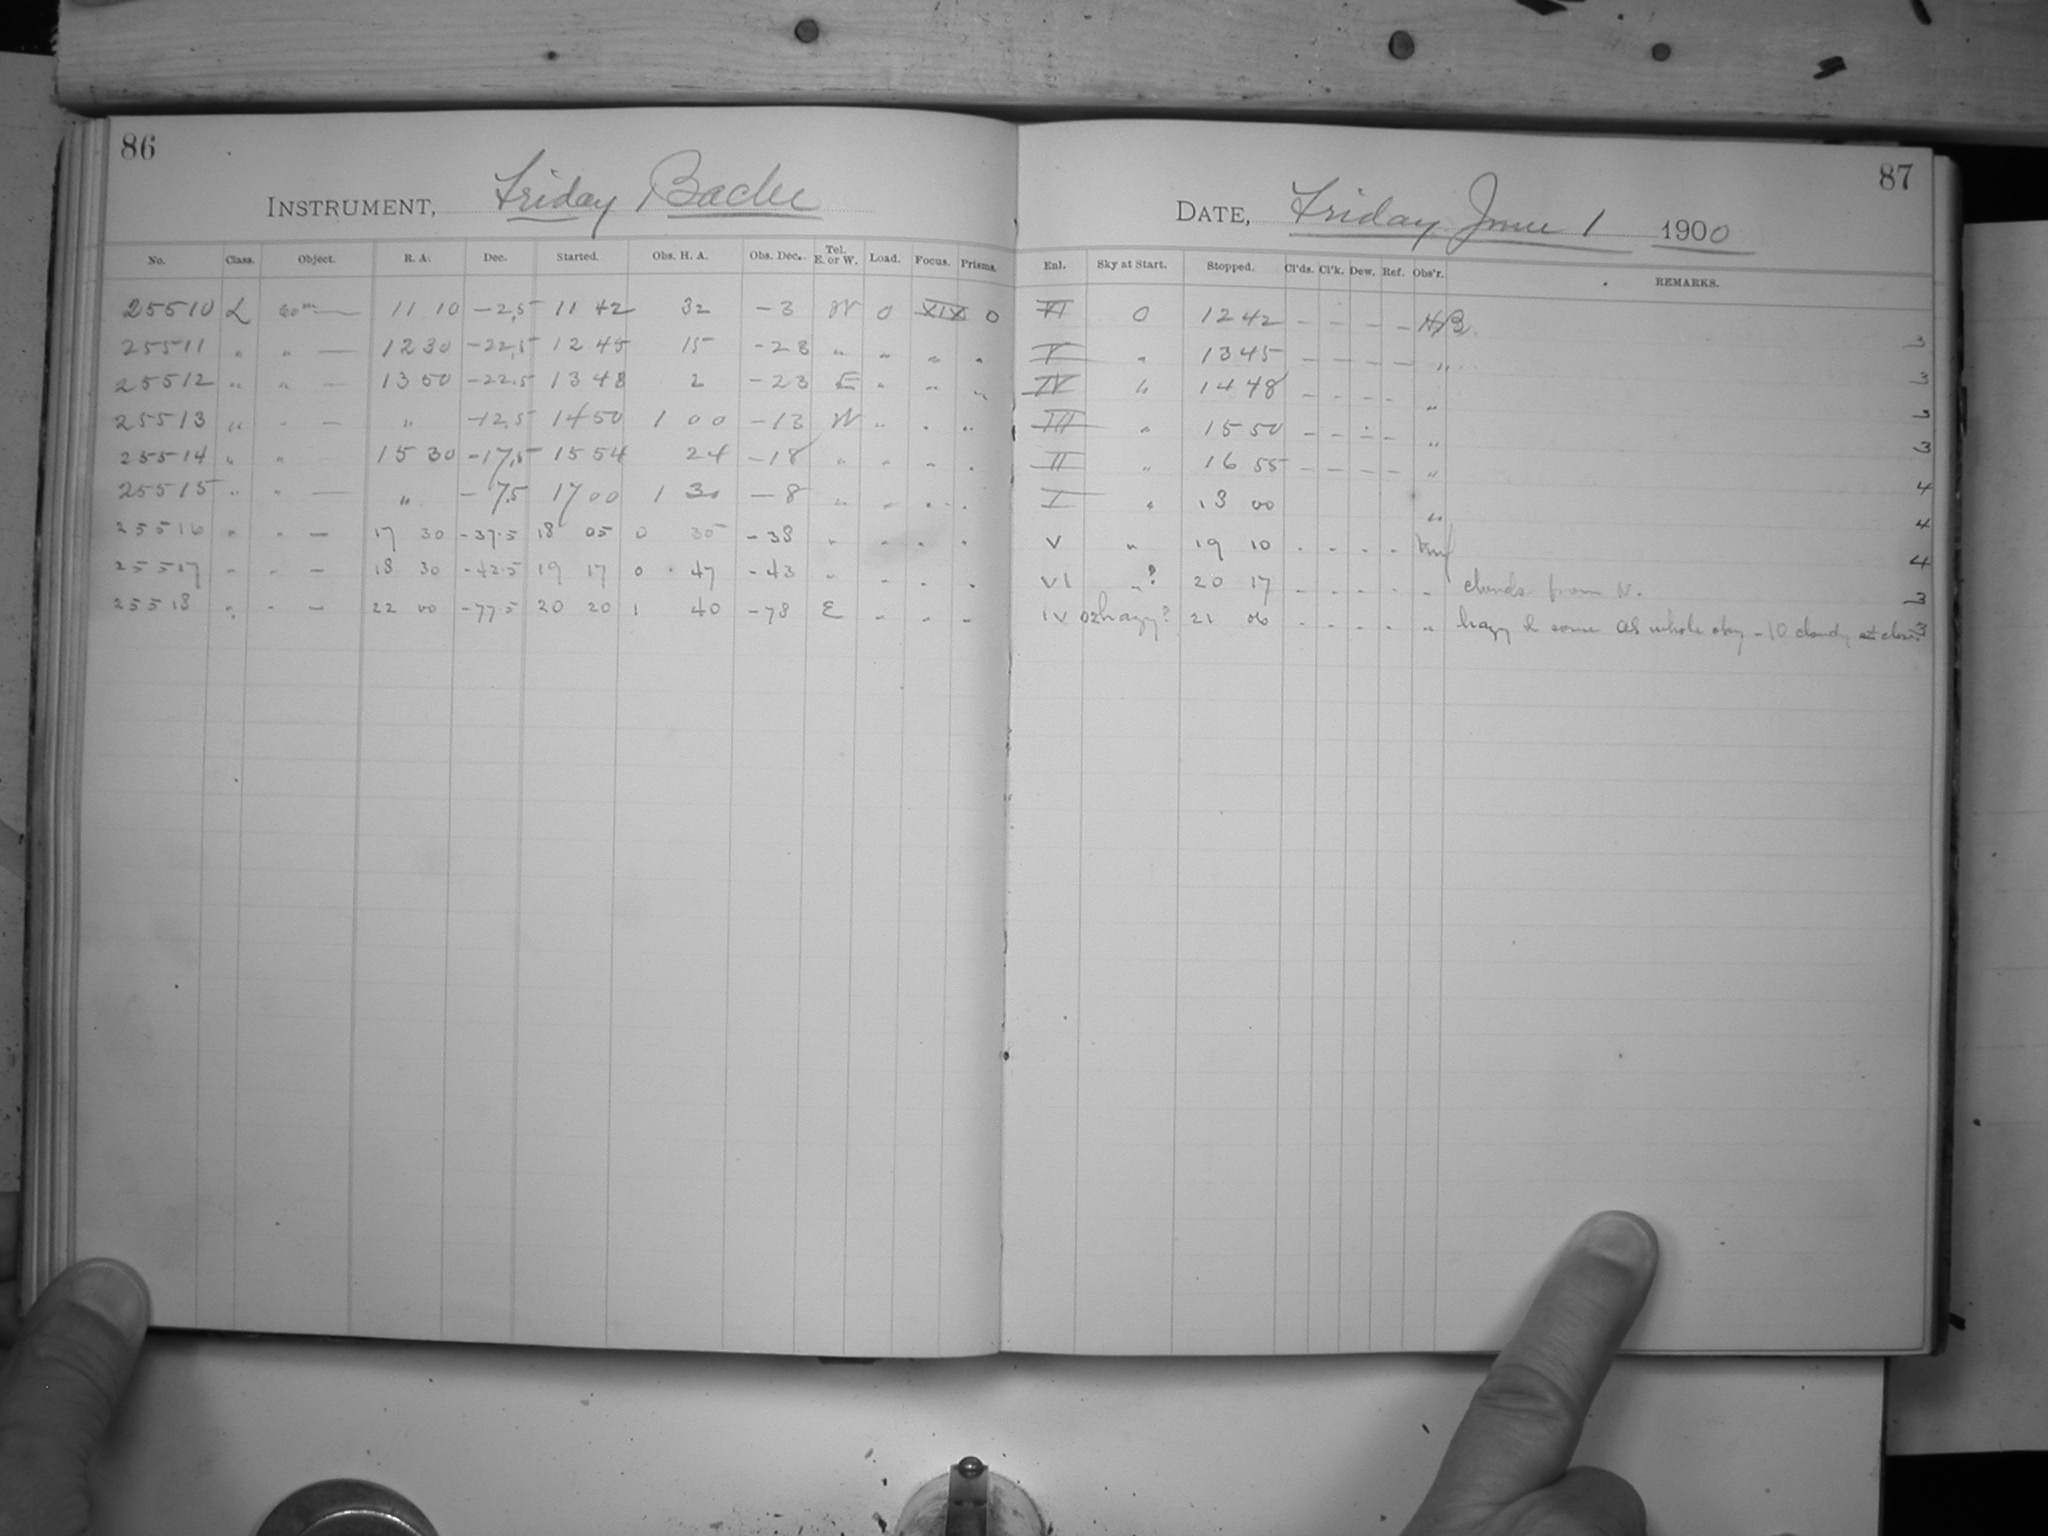 86
INSTRUMENT, Friday Bache
No. Class. Object. R. A. Dec. Started. Obs. H. A. Obs. Dec. Tel. E. or W. Load. Focus. Prisms.
25510 L 60m — 11 10 -2.5 11 42 32 -3 W 0 XIX 0
25511 " " — 12 30 -22.5 12 45 15 -23 " " " "
25512 " " — 13 50 -22.5 13 48 2 -23 E " " "
25513 " " — " -12.5 14 50 1 00 -13 W " " "
25514 " " — 15 30 -17.5 15 54 24 -18 " " " "
25515 " " — " -7.5 17 00 1 30 -8 " " " "
25516 " " — 17 30 -37.5 18 05 0 35 -38 " " " "
25517 " " — 18 30 -42.5 19 17 0 47 -43 " " " "
25518 " " — 22 00 -77.5 20 20 1 40 -78 E " " "
87
DATE, Friday June 1 1900
Enl. Sky at Start. Stopped. Cl'ds. Cl'k. Dew. Ref. Obs'r. REMARKS.
VI 0 12 42 - - - - HB
V " 13 45 - - - - " 3
IV " 14 48 - - - - " 3
III " 15 50 - - - - " 3
II " 16 55 - - - - " 3
I " 18 00 " 4
V " 19 10 - - - - 4
VI "? 20 17 - - - - " clouds from N. 4
IV hazy? 21 06 - - - - " hazy & some CS whole sky - 10 cloudy at close. 3
3